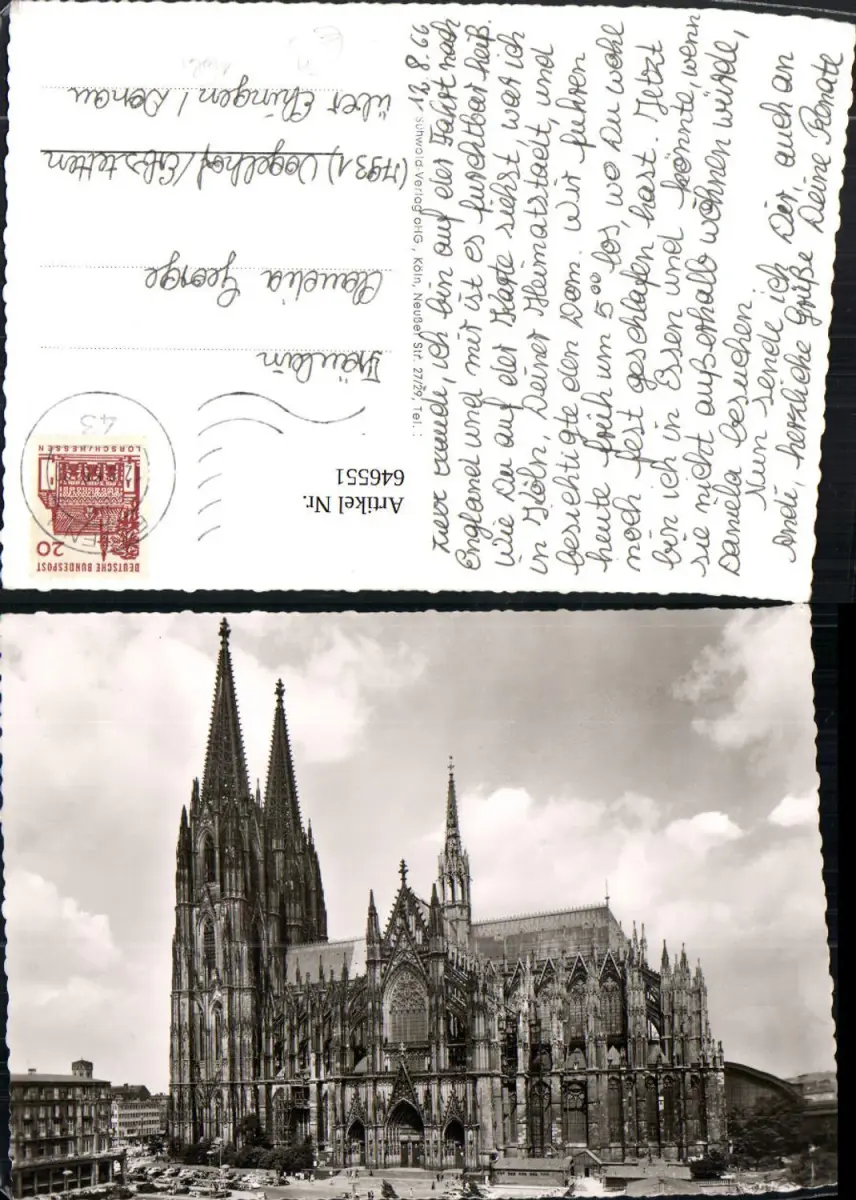 12.8.66
Liebe Claudi, ich bin auf der Fahrt nach
England und mir ist es furchtbar heiß.
Wie Du auf der Karte siehst war ich
in Köln, Deiner Heimatstadt, und
besichtigte den Dom. Wir fuhren
heute früh um 5⁰⁰ los, wo Du wohl
noch fest geschlafen hast. Jetzt
bin ich in Essen und könnte, wenn
sie nicht außerhalb wohnen würde,
Daniela besuchen.
Nun sende ich Dir, auch an
Andi herzliche Grüße Deine Renate
Schwald-Verlag oHG, Köln, Neußer Str. 27/29, Tel.:
DEUTSCHE BUNDESPOST
20
LORSCH/HESSEN
43
ESSEN
Artikel Nr.
646551
Fräulein
Claudia George
(7931) Vogelhof/Erbstetten
über Ehingen/Donau